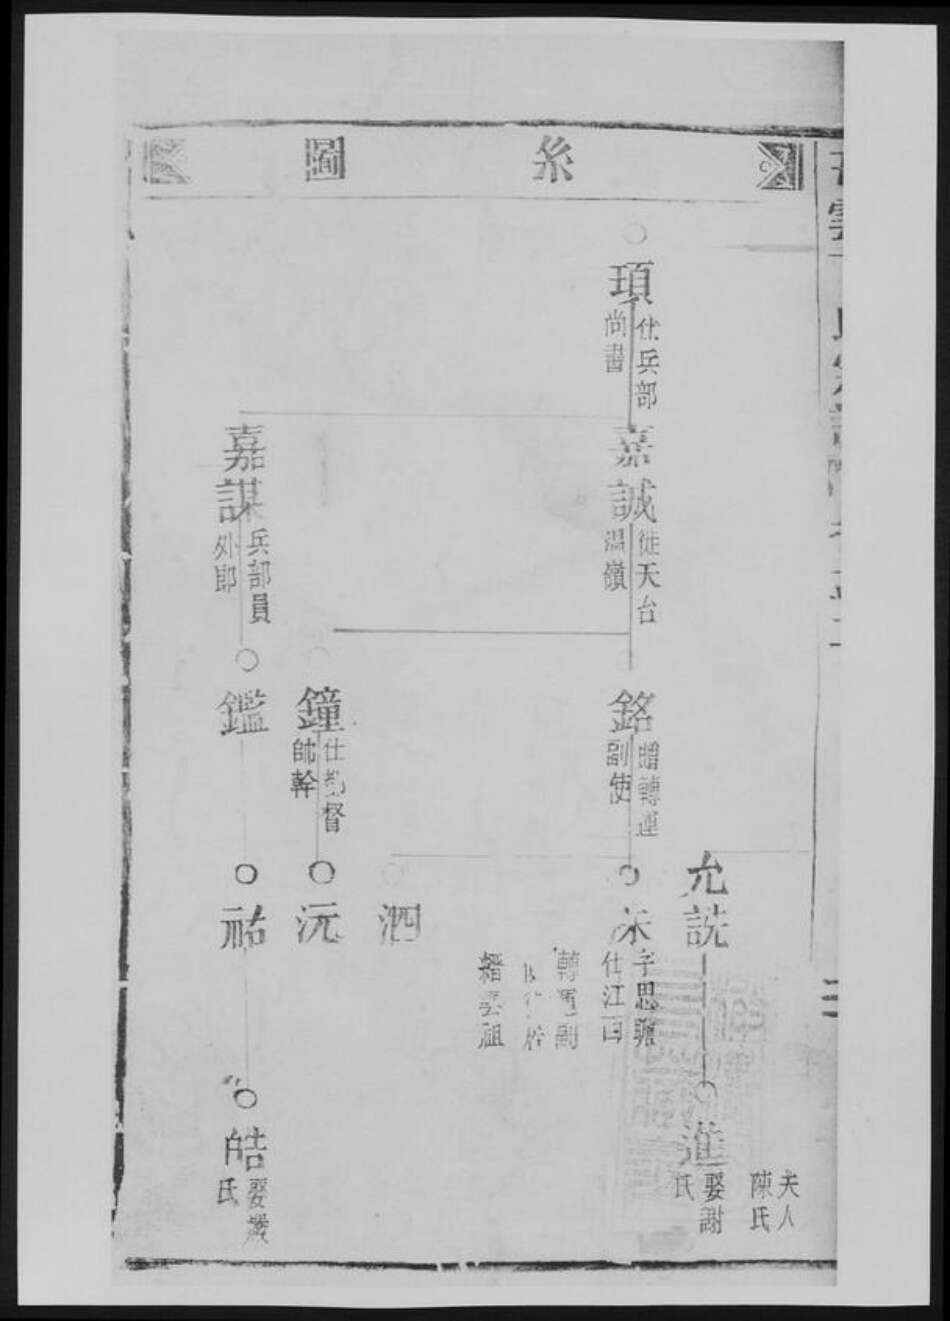 系圖
夫人
陳氏
允詵
進
娶謝
氏
頊
仕兵部
尚書
嘉誠
徙天台
溫嶺
銘
贈轉運
副使
字思
仕江西
轉運副
縉雲祖
泗
鐘
仕都督
帥幹
沅
嘉謀
兵部員
外郎
鑑
祐
皓
娶
氏